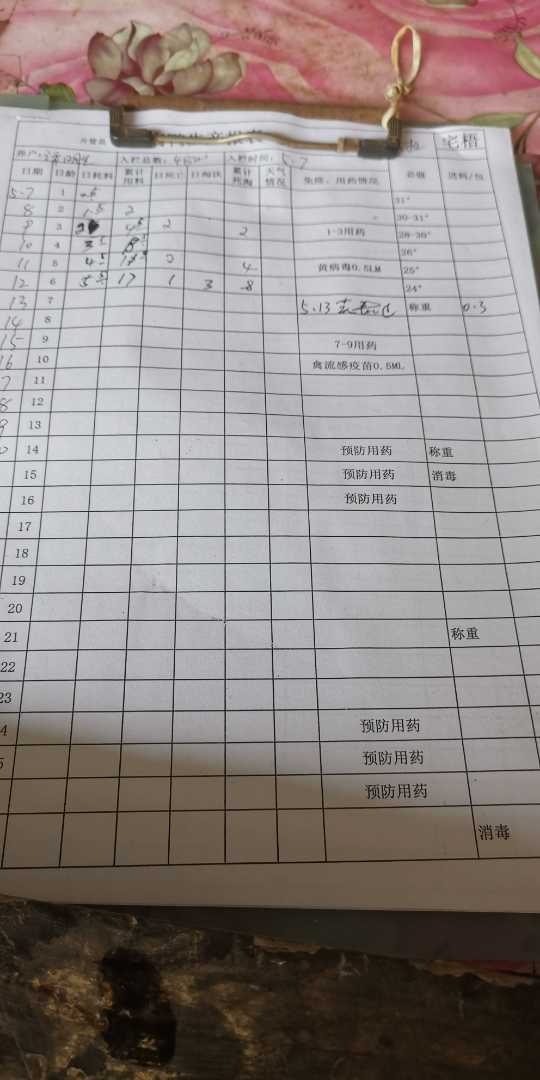 入栏总数: 入栏时间: 5.7
日期 日龄 日耗料 累计用料 日死亡 日淘汰 累计死淘 天气情况 免疫、用药情况 进料/包
5.7 1 31°
8 2 1.5 2 30-31°
9 3 2 2 1-3用药 28-30°
10 4 26°
11 5 4.5 2 4 黄病毒0.5LM 25°
12 6 5.5 17 1 3 8 24°
13 7 5.13 称重 0.3
14 8
15 9 7-9用药
16 10 禽流感疫苗0.5ML
7 11
8 12
9 13
14 预防用药 称重
15 预防用药 消毒
16 预防用药
17
18
19
20
21 称重
22
23
4 预防用药
5 预防用药
预防用药
消毒